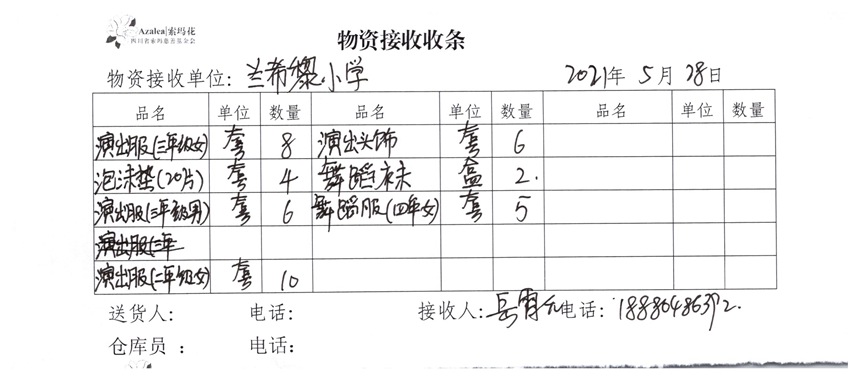 Azalea|索玛花
四川省索玛慈善基金会
物资接收收条
物资接收单位：兰希黎小学 2021年 5月 28日
品名 单位 数量 品名 单位 数量 品名 单位 数量
演出服(三年级女) 套 8 演出头饰 套 6
泡沫垫(20片) 套 4 舞蹈袜 盒 2.
演出服(三年级男) 套 6 舞蹈服(四年女) 套 5
演出服(三年
演出服(二年级女) 套 10
送货人： 电话： 接收人：岳 电话：
仓库员 ： 电话：